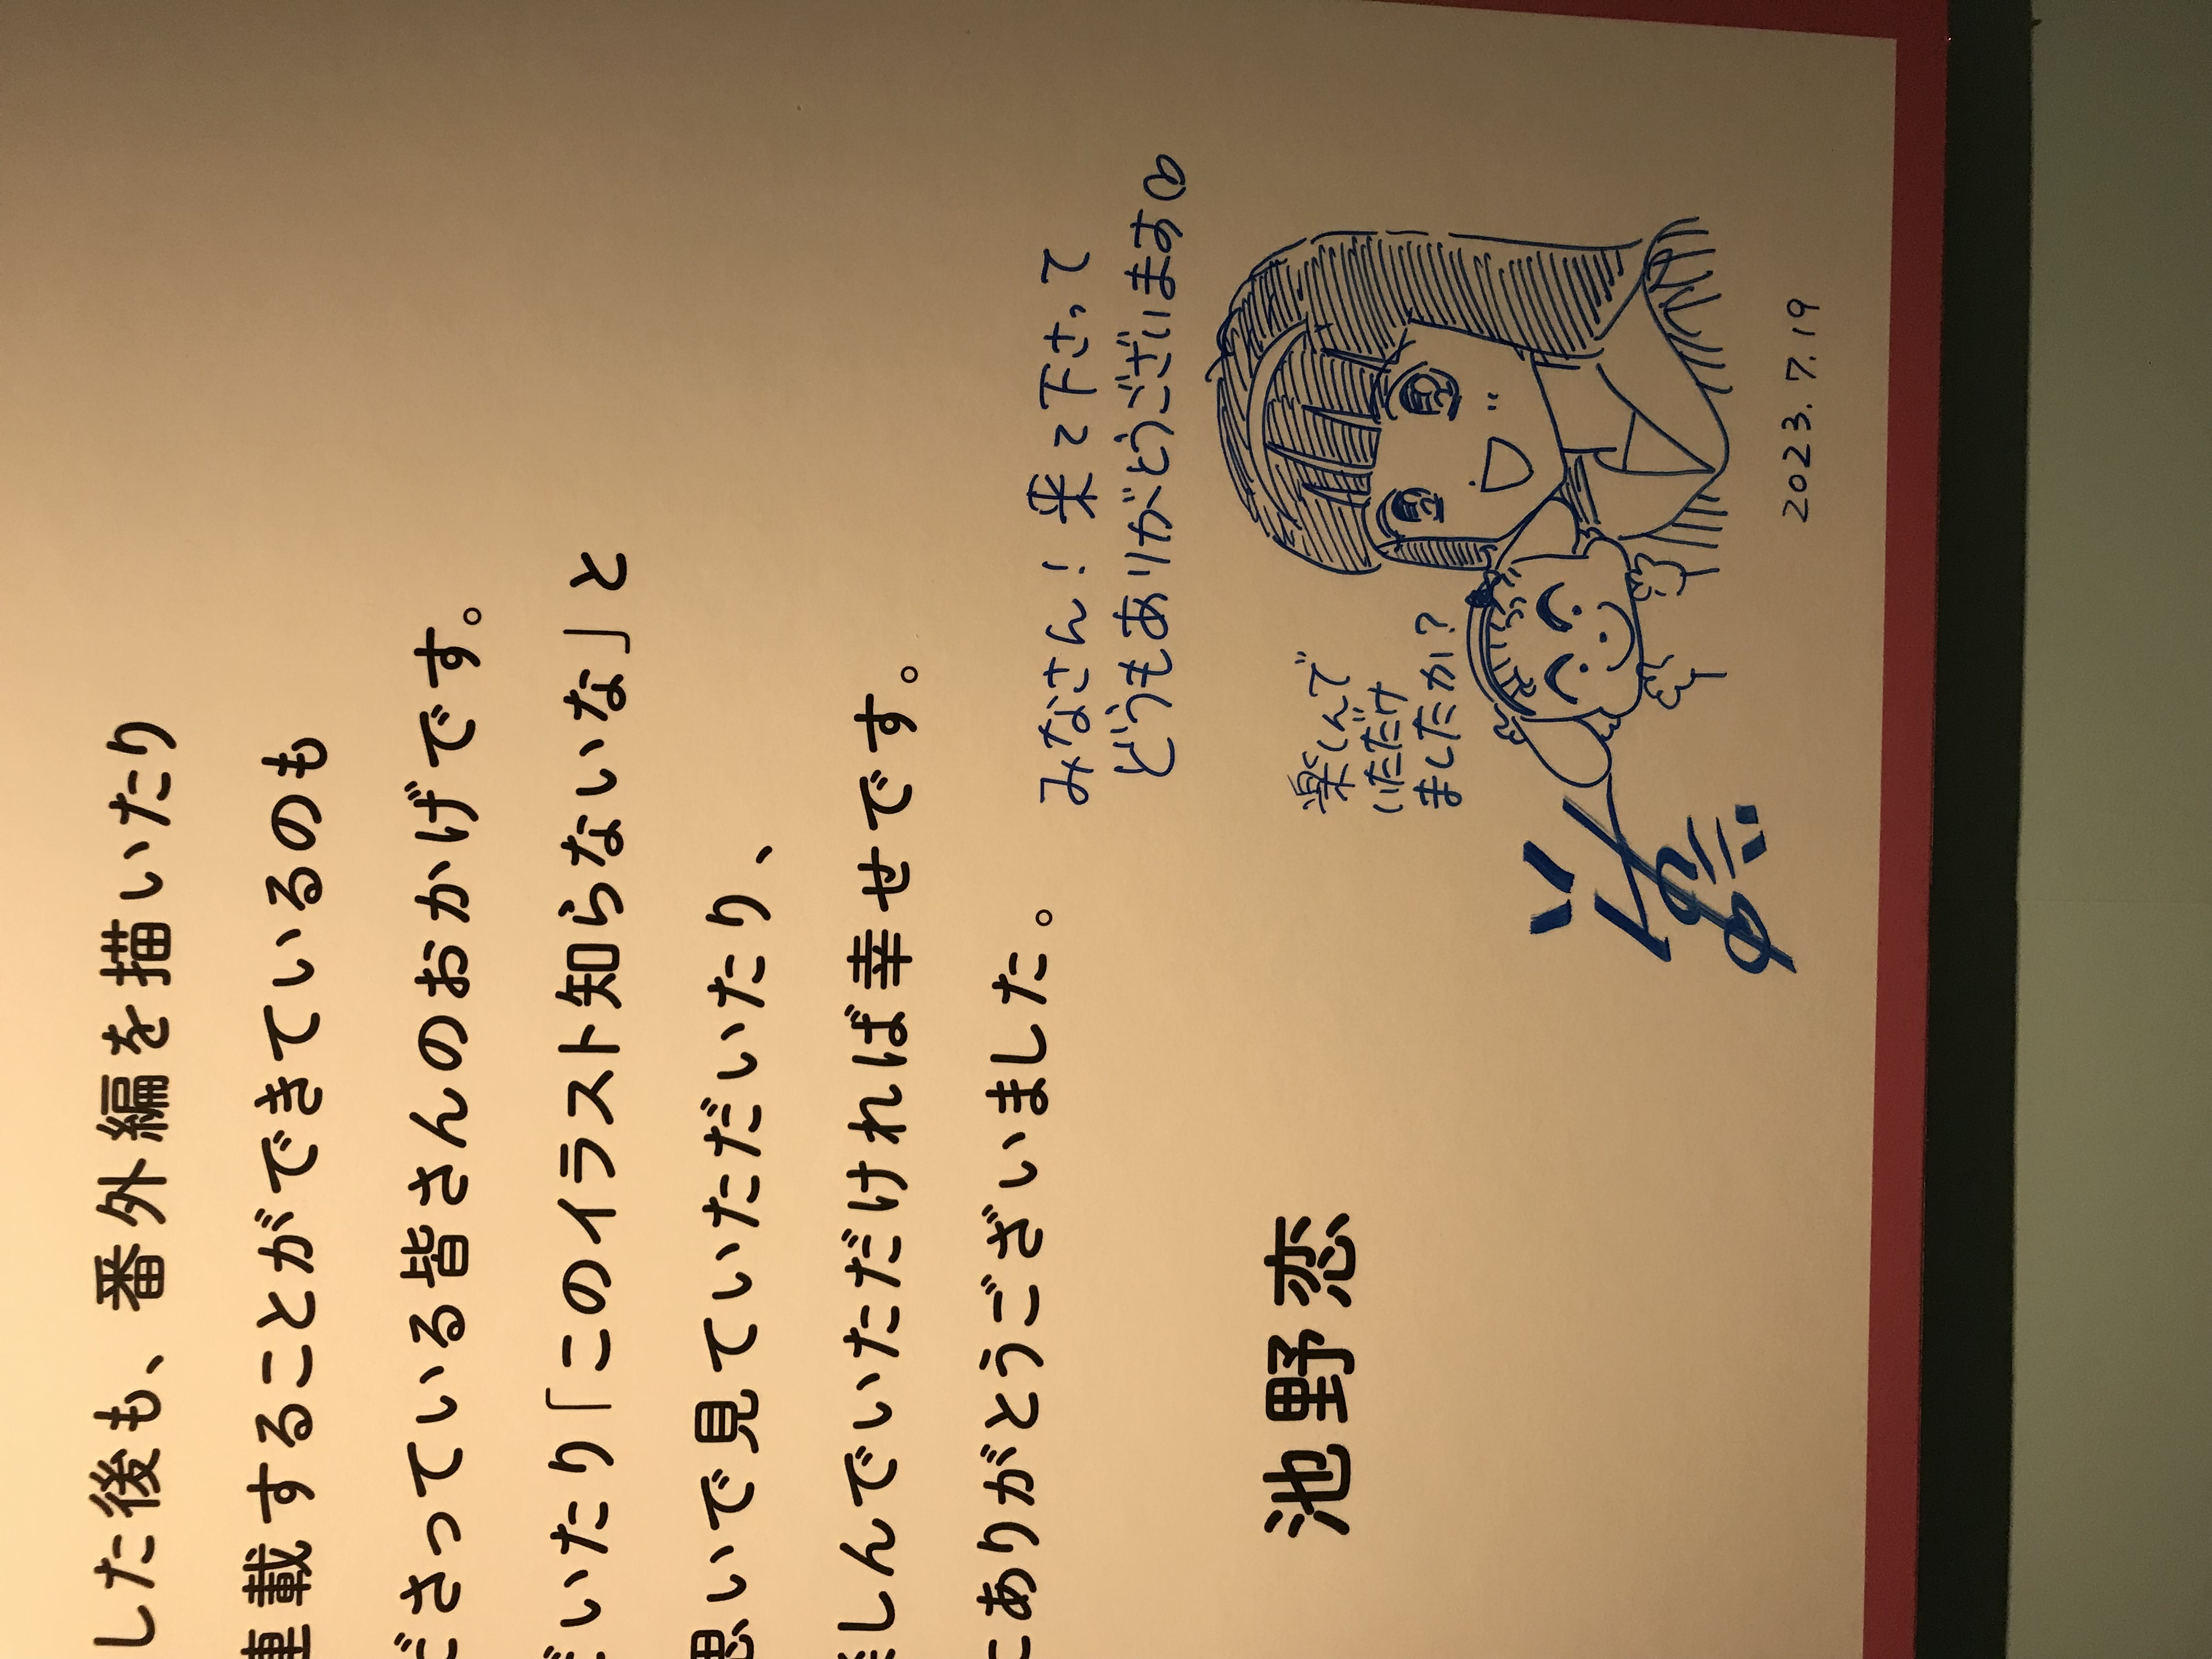 した後も、番外編を描いたり
連載することができているのも
ださっている皆さんのおかげです。
だいたり「このイラスト知らないな」と
思いで見ていただいたり、
楽しんでいただければ幸せです。
にありがとうございました。
みなさん！来て下さって
どうもありがとうございます♡
池野恋
楽しんで
いただけ
ましたか？
2023.7.19